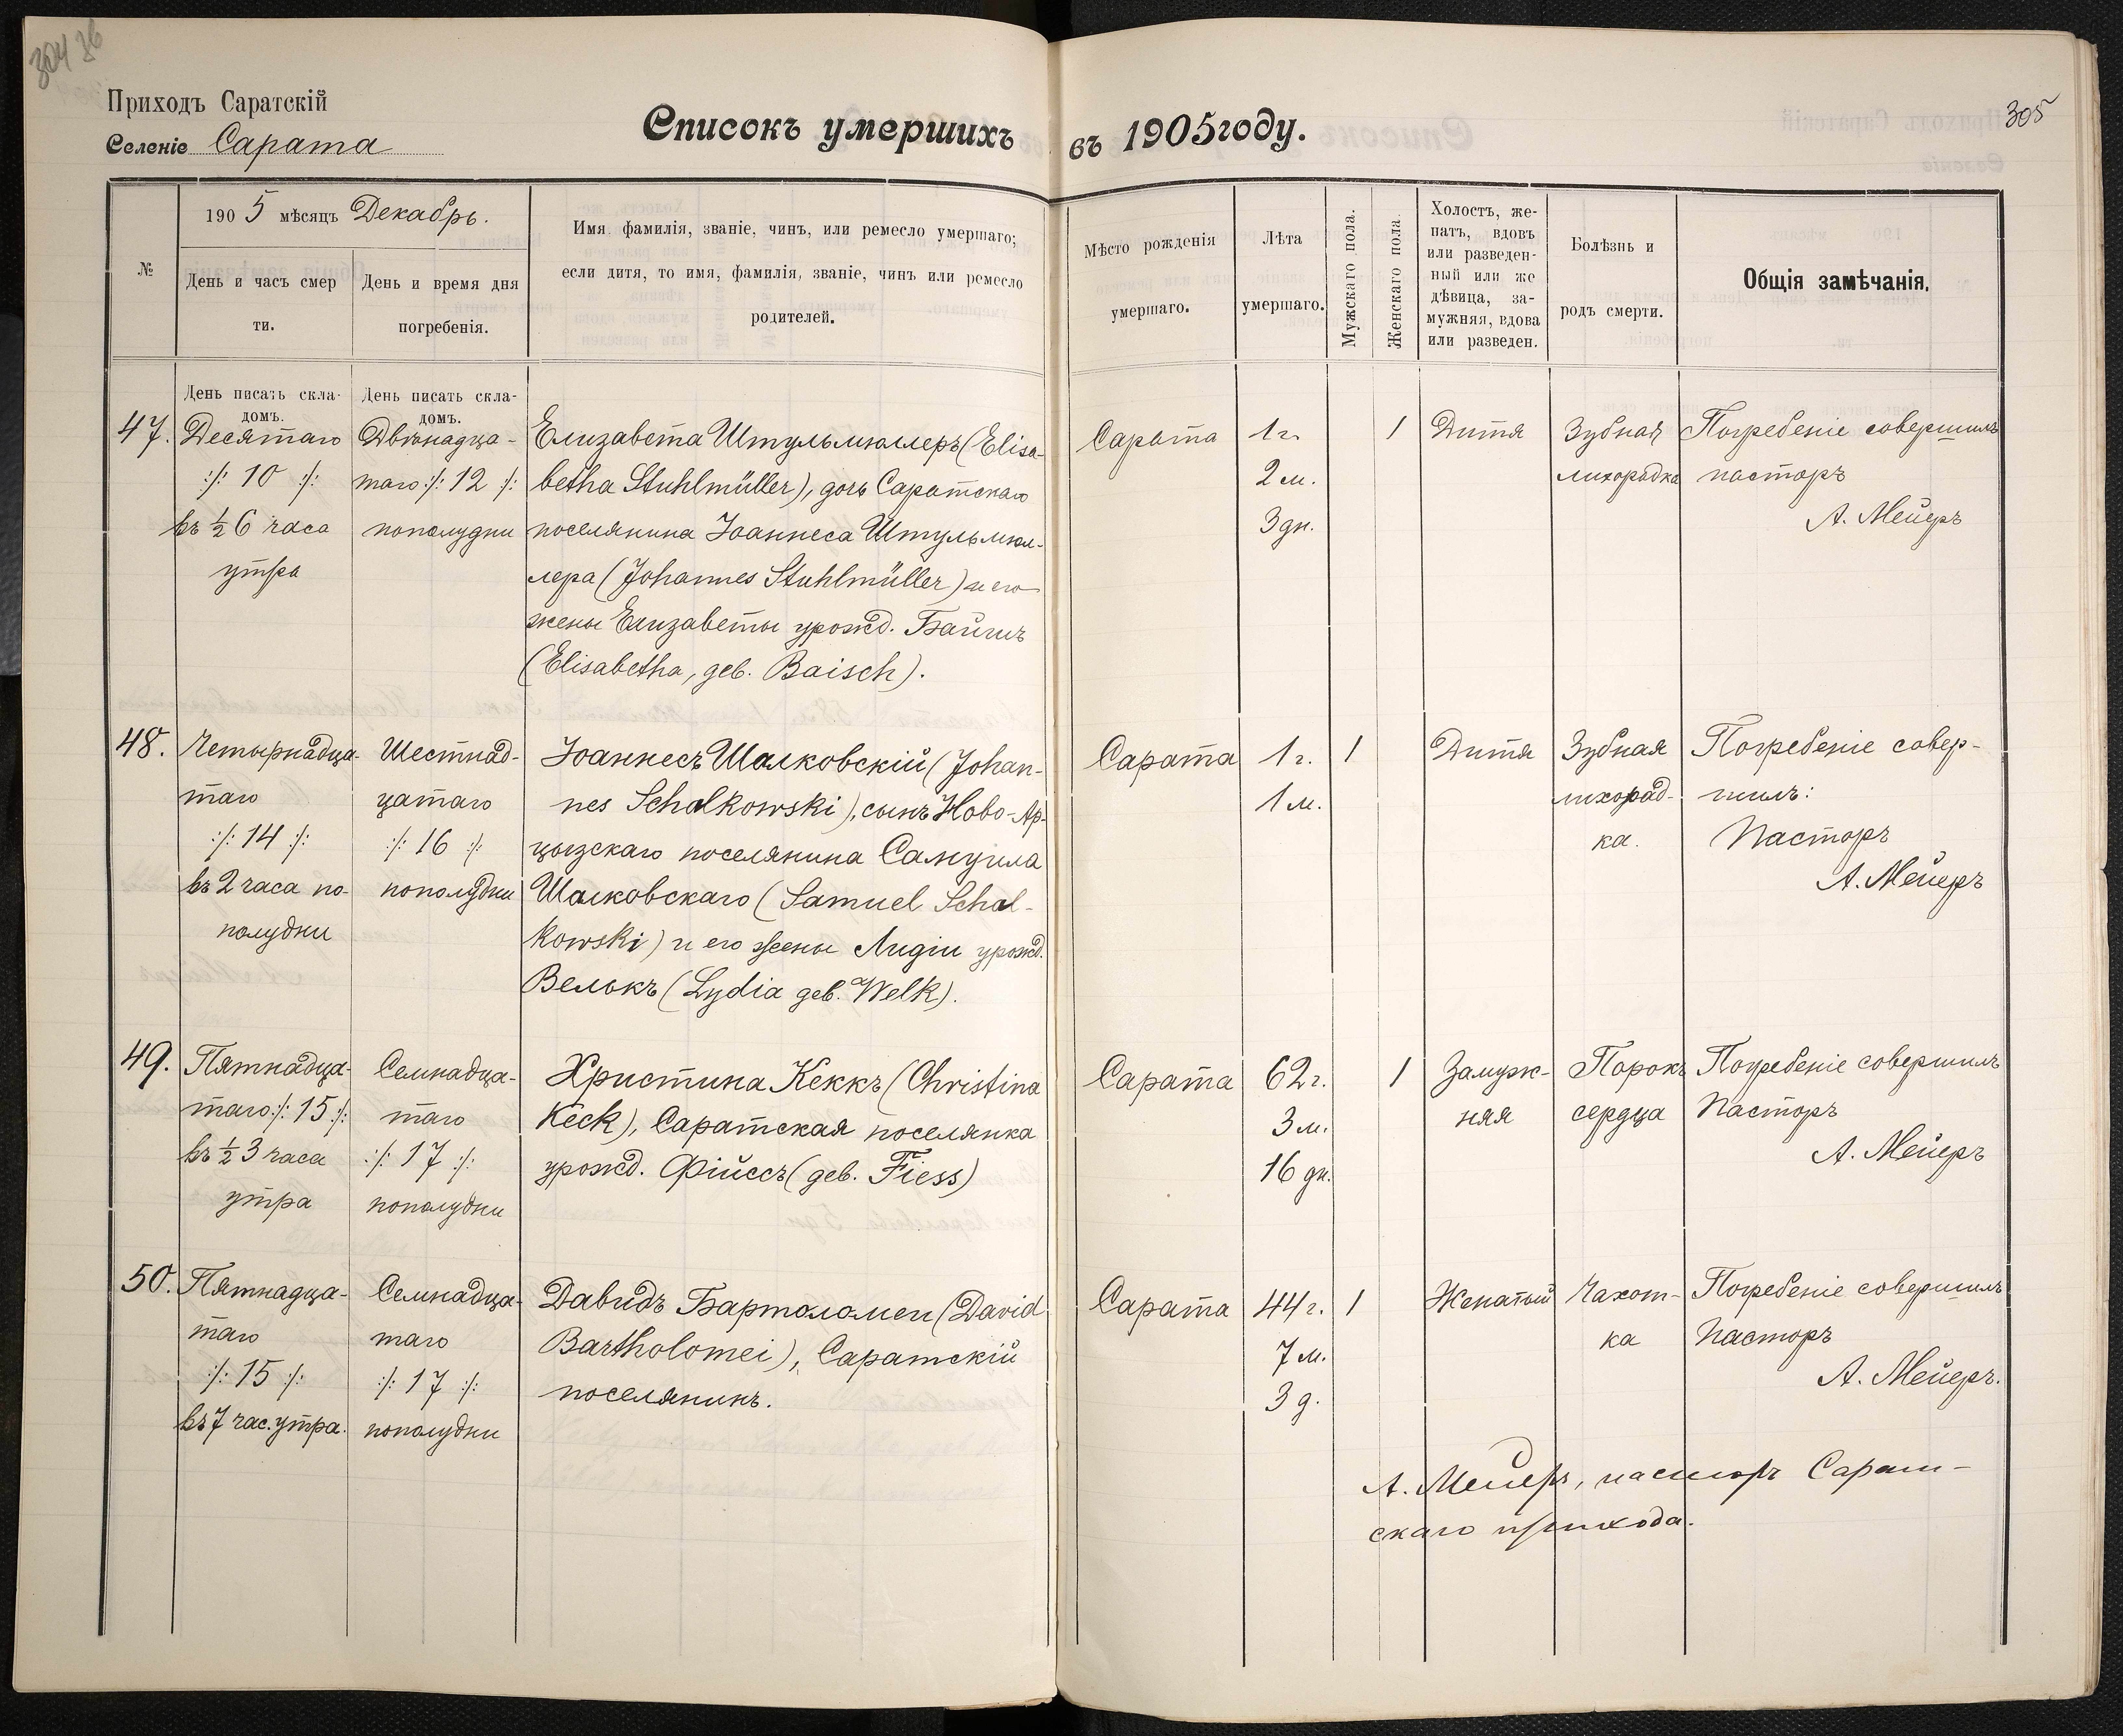 304 36
305
Приходъ Саратскій
Селеніе Сарата
Списокъ умершихъ въ 1905 году.
№
1905 мѣсяцъ Декабрь.
День и часъ смер
ти.
День и время дня
погребенія.
Имя, фамилія, званіе, чинъ, или ремесло умершаго;
если дитя, то имя, фамилія, званіе, чинъ или ремесло
родителей.
Мѣсто рожденія
умершаго.
Лѣта
умершаго.
Мужскаго пола.
Женскаго пола.
Холостъ, же-
натъ, вдовъ
или разведен-
ный или же
дѣвица, за-
мужняя, вдова
или разведен.
Болѣзнь и
родъ смерти.
Общія замѣчанія.
День писать скла-
домъ.
День писать скла-
домъ.
47.
Десятаго
:/: 10 :/:
въ ½ 6 часа
утра
Двѣнадца-
таго :/: 12 :/:
пополудни
Елизавета Штульмюллеръ (Elisa-
betha Stuhlmüller), дочь Саратскаго
поселянина Іоаннеса Штульмюл-
лера (Johannes Stuhlmüller) и его
жены Елизаветы урожд. Байшъ
(Elisabetha, geb. Baisch).
Сарата
1 г.
2 м.
3 дн.
1
Дитя
Зубная
лихорадка
Погребеніе совершилъ
пасторъ
А. Мейеръ
48.
Четырнадца-
таго
:/: 14 :/:
въ 2 часа по-
полудни
Шестнад-
цатаго
:/: 16 :/:
пополудни
Іоаннесъ Шалковскій (Johan-
nes Schalkowski), сынъ Ново-Ар-
цызскаго поселянина Самуила
Шалковскаго (Samuel Schal-
kowski) и его жены Лидіи урожд.
Велькъ (Lydia geb. Welk).
Сарата
1 г.
1 м.
1
Дитя
Зубная
лихорад-
ка.
Погребеніе совер-
шилъ:
Пасторъ
А. Мейеръ
49.
Пятнадца-
таго :/: 15 :/:
въ ½ 3 часа
утра
Семнадца-
таго
:/: 17 :/:
пополудни
Христина Кеккъ (Christina
Keck), Саратская поселянка
урожд. Фійссъ (geb. Fiess)
Сарата
62 г.
3 м.
16 дн.
1
Замуж-
няя
Порокъ
сердца
Погребеніе совершилъ
Пасторъ
А. Мейеръ
50.
Пятнадца-
таго
:/: 15 :/:
въ 7 час. утра.
Семнадца-
таго
:/: 17 :/:
пополудни
Давидъ Бартоломеи (David
Bartholomei), Саратскій
поселянинъ.
Сарата
44 г.
7 м.
3 д.
1
Женатый
Чахот-
ка
Погребеніе совершилъ
Пасторъ
А. Мейеръ.
А. Мейеръ, пасторъ Сарат-
скаго прихода.